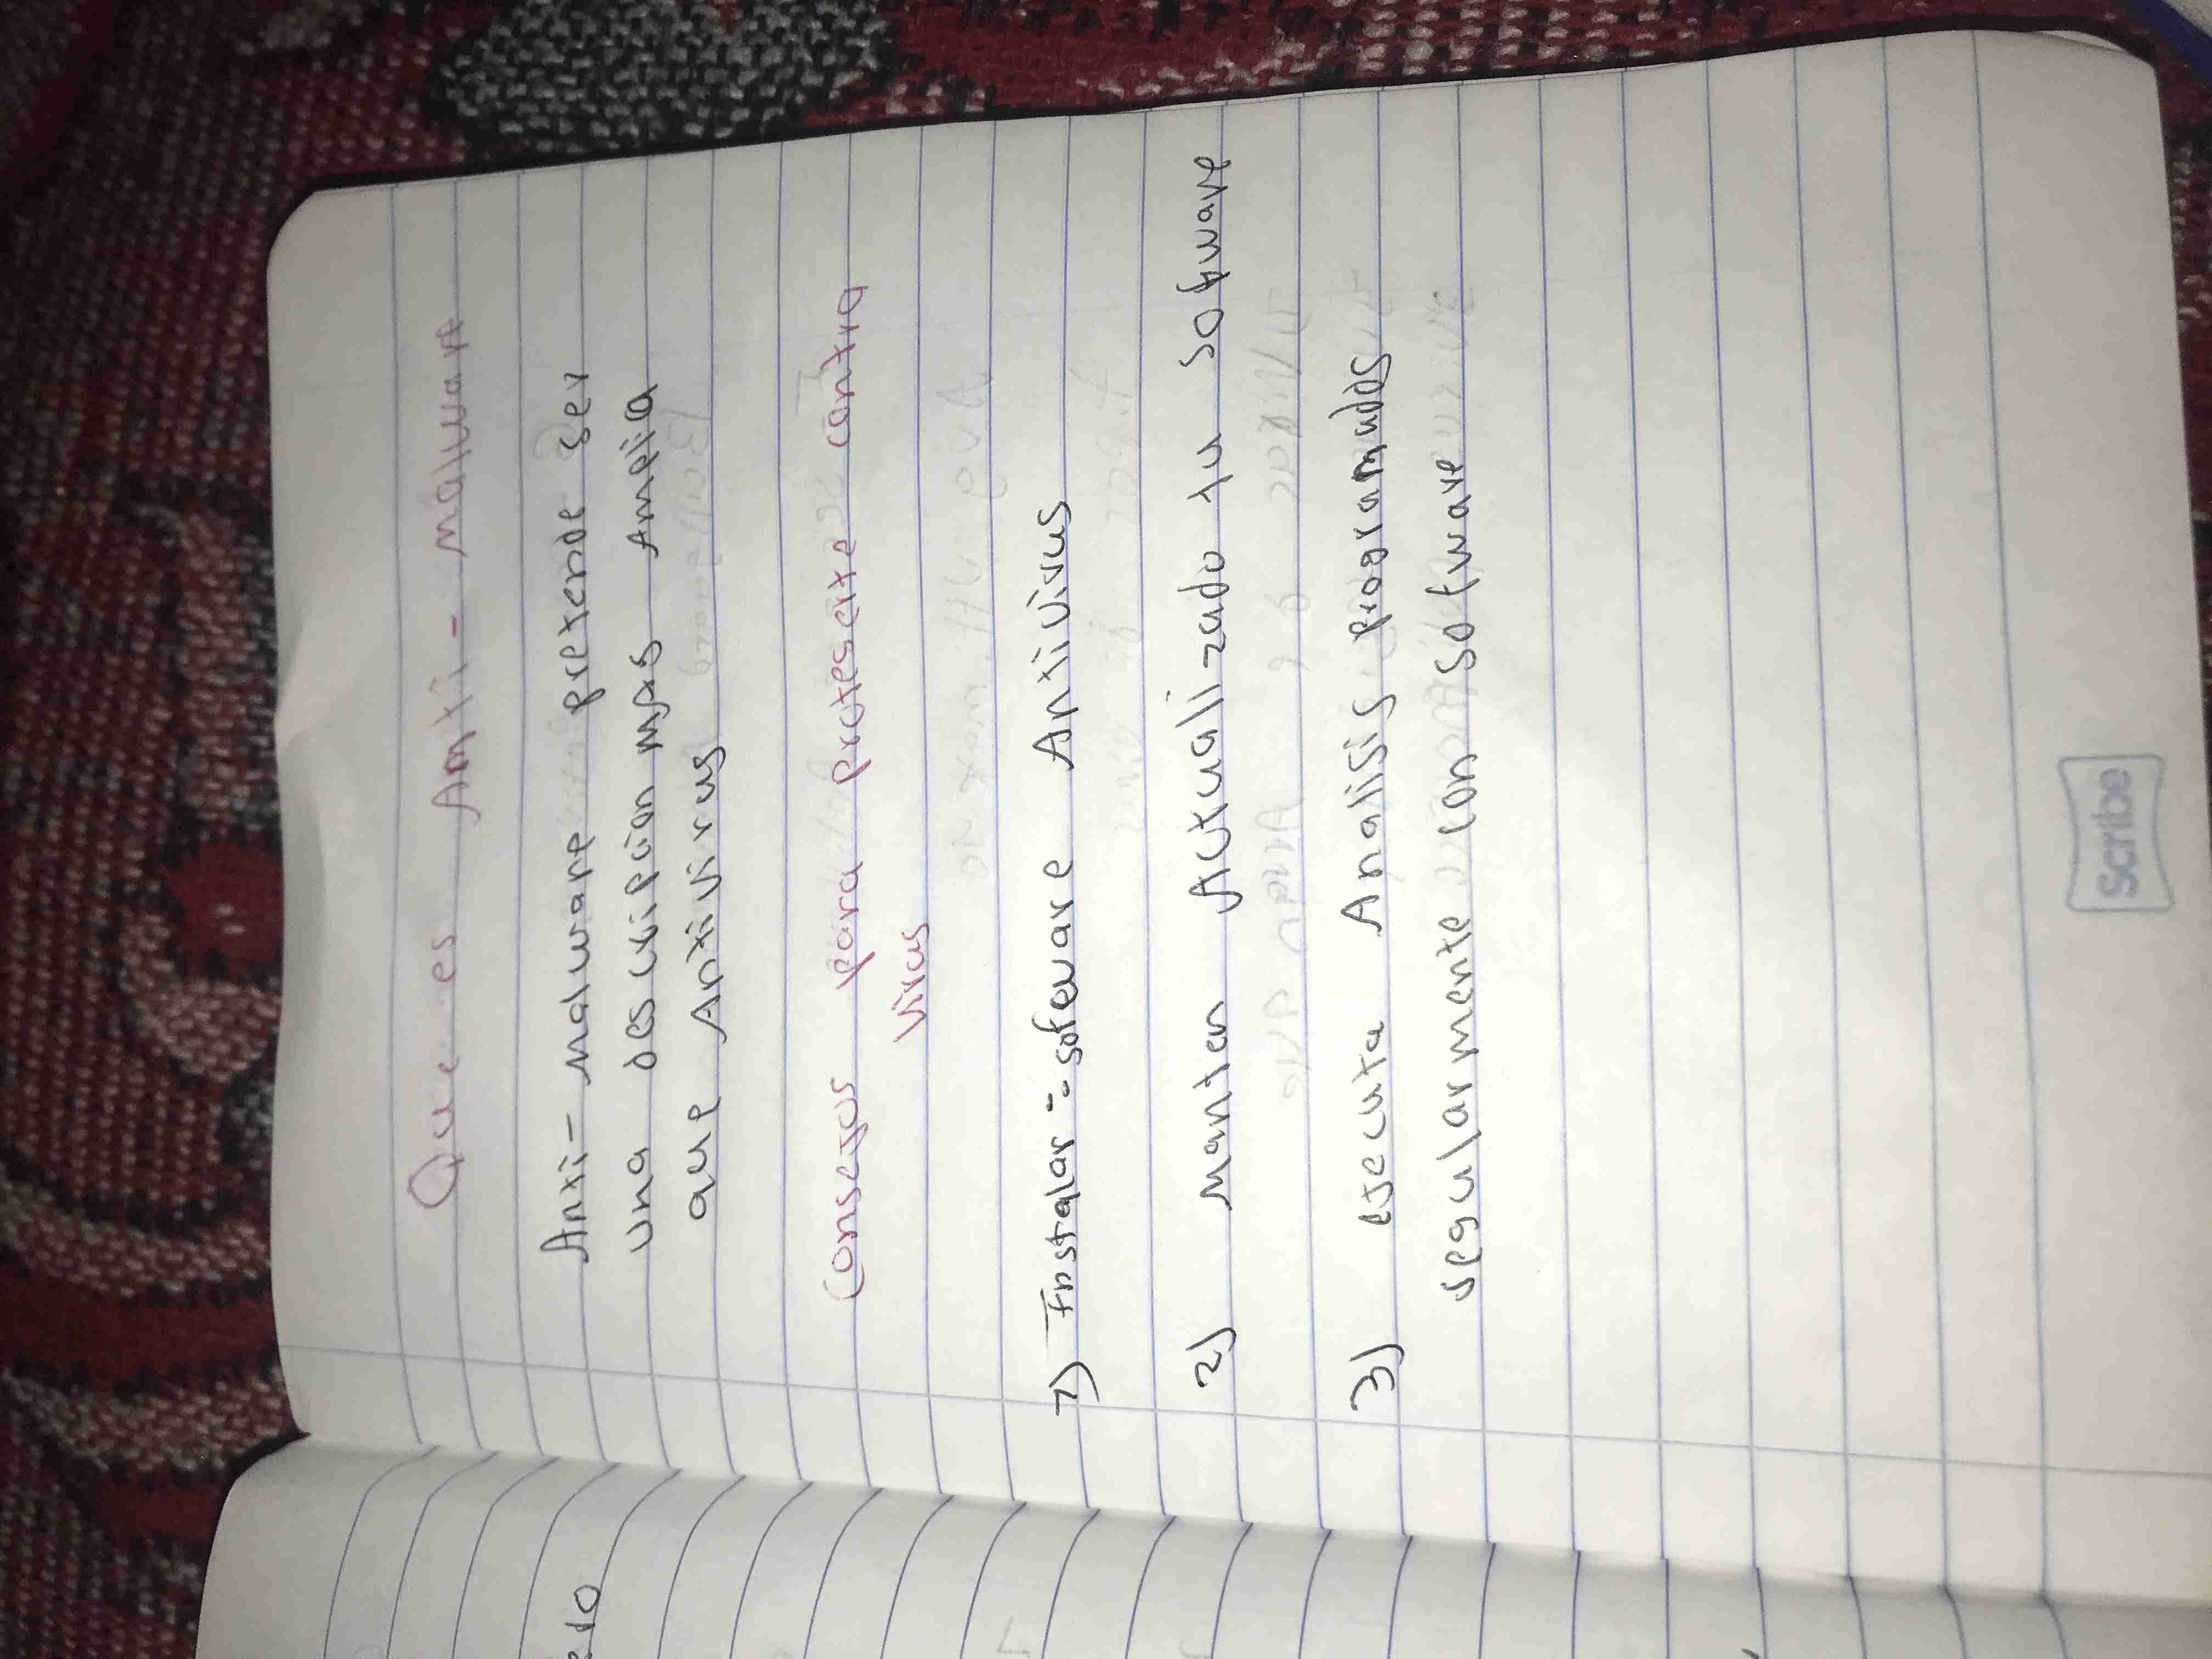 Que es Anti-malware
Anti-malware pretende ser
una descripción mas Amplia
que Antivirus
Consejos para protegerte contra
virus
1) Instalar = sofeware Antivirus
2) manten Actualizado tu software
3) ejecuta Analisis programados
regularmente con software
Scribe